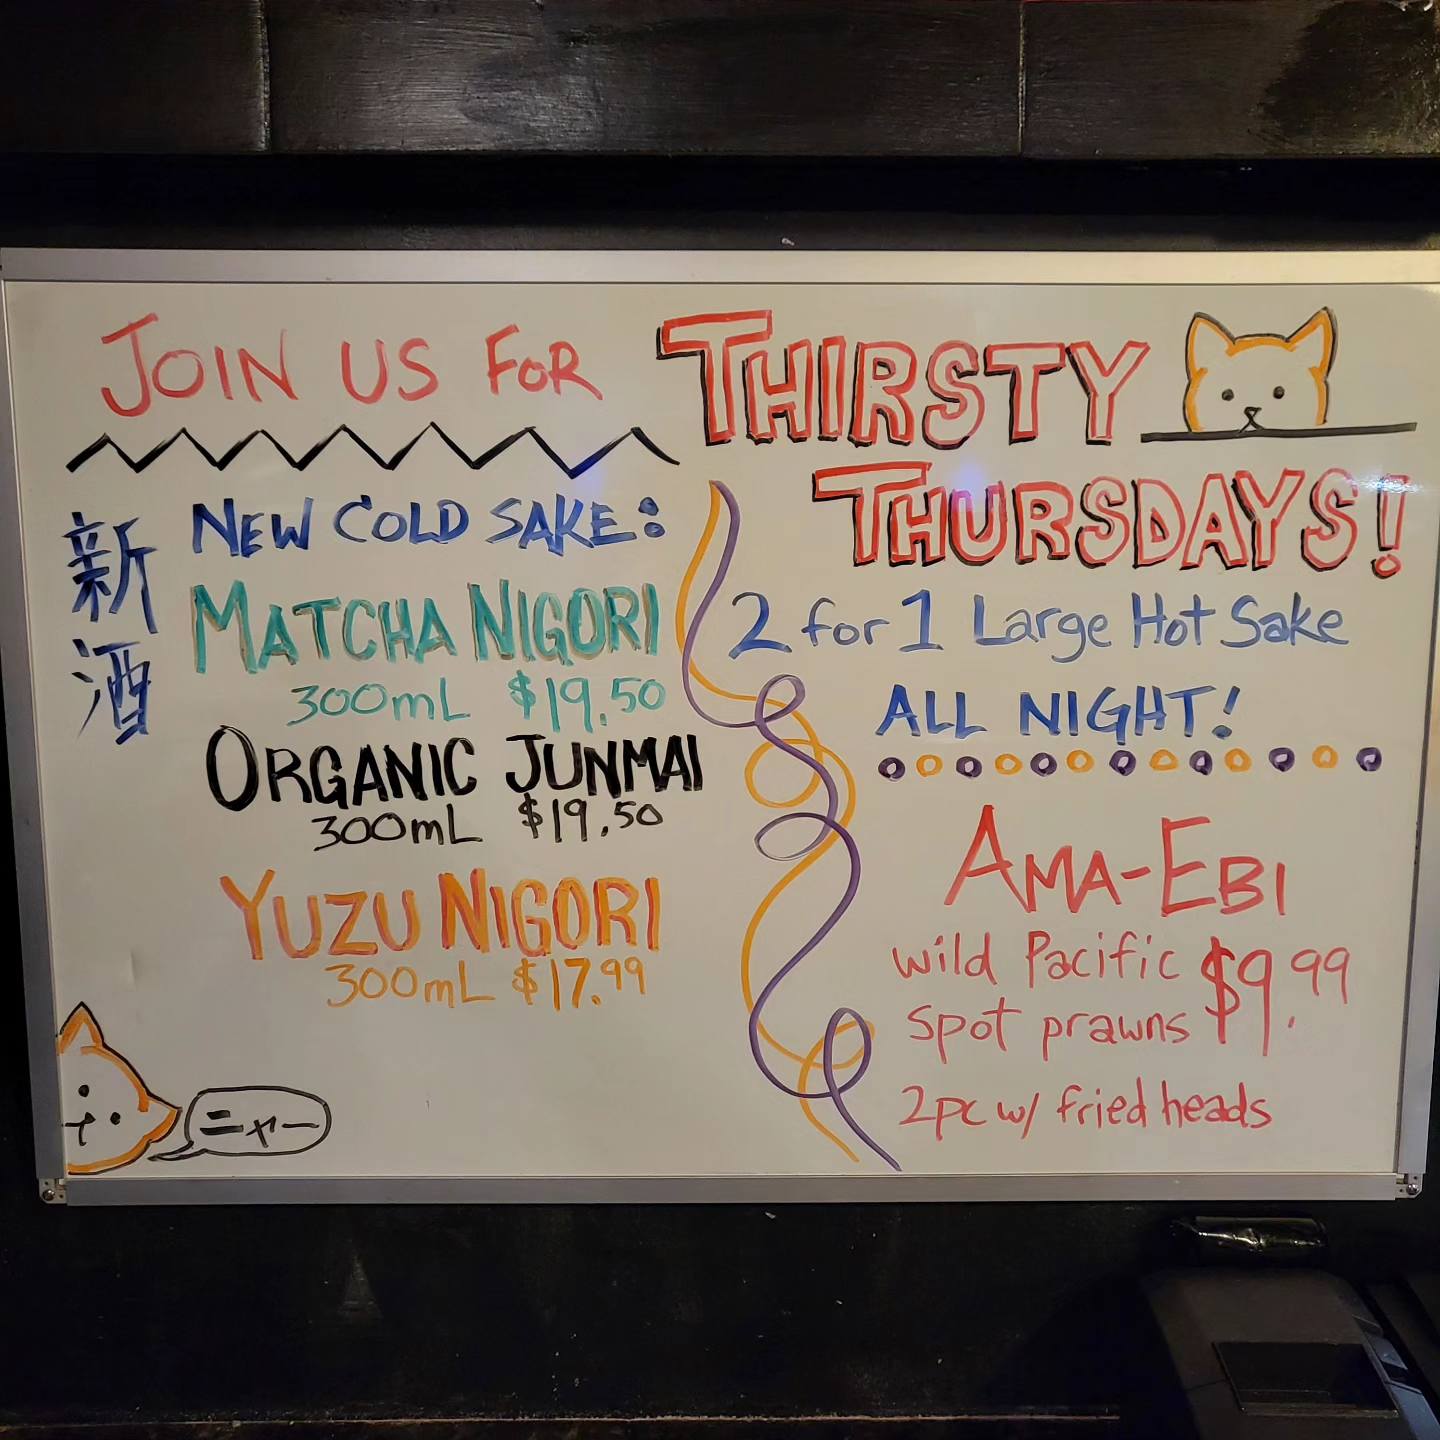 JOIN US FOR THIRSTY
THURSDAYS!
新酒
NEW COLD SAKE:
MATCHA NIGORI
300mL $19.50
ORGANIC JUNMAI
300mL $19.50
YUZU NIGORI
300mL $17.99
ニャー
2 for 1 Large Hot Sake
ALL NIGHT!
AMA-EBI
wild Pacific
spot prawns $9.99
2pc w/ fried heads